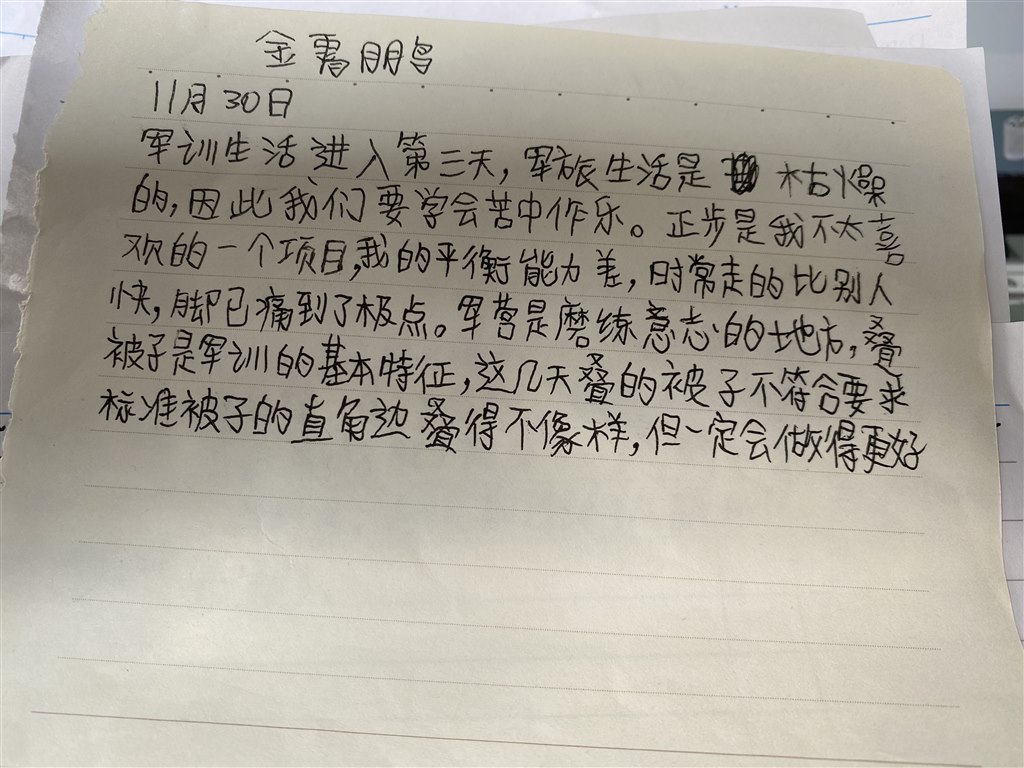 金鹏
11月30日
军训生活进入第三天，军旅生活是枯燥
的，因此我们要学会苦中作乐。正步是我不太喜
欢的一个项目，我的平衡能力差，时常走的比别人
快，脚已痛到了极点。军营是磨练意志的地方，叠
被子是军训的基本特征，这几天叠的被子不符合要求
标准被子的直角边叠得不像样，但一定会做得更好